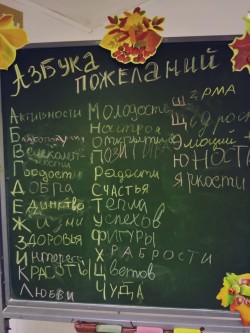 АЗБУКА
ПОЖЕЛАНИЙ
Активности
Благополучия
Гордости
Добра
Единство
Жизни
Здоровья
Интереса
Красоты
Любви
Молодости
Настроя
Открытий
Позитива
Радости
Счастья
Тепла
Успехов
Фигуры
Храбрости
Цветов
Чуда
Шарма
Щедрости
Эмоций
Юности
Яркости